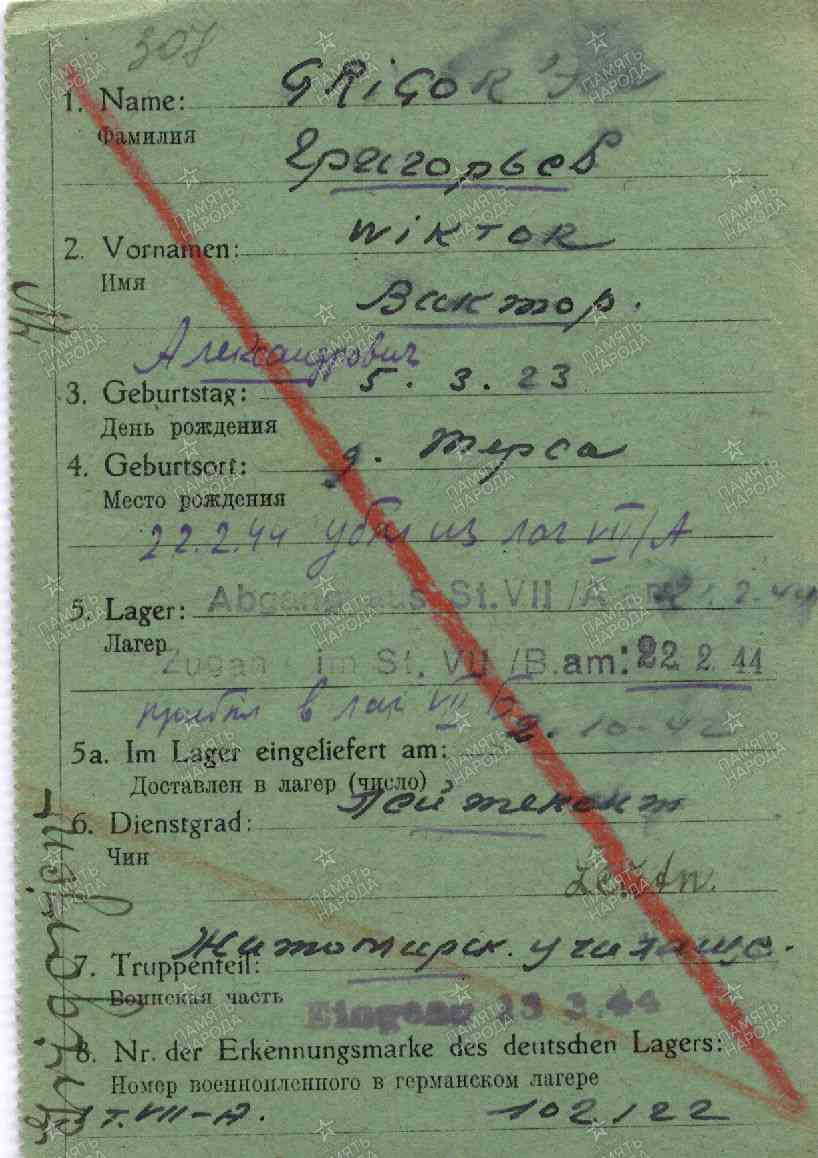 307
1. Name: GRIGOR'
Фамилия
Григорьев
2. Vornamen: WIKTOR
Имя
Виктор.
Александрович
3. Geburtstag: 5. 3. 23
День рождения
4. Geburtsort: д. Терса
Место рождения
22.2.44 убыл из лаг VII/A
5. Lager: Abgang aus St. VII /A 2.44
Лагер
Zugang im St. VII /B. am: 22. 2. 44
прибыл в лаг VII
2. 10-42
5a. Im Lager eingeliefert am:
Доставлен в лагер (число)
6. Dienstgrad: Лейтенант
Чин
Leutn.
7. Truppenteil: Житомирск. училище.
Воинская часть
Eingang 13 3.44
8. Nr. der Erkennungsmarke des deutschen Lagers:
Номер военнопленного в германском лагере
ST. VII-A. 102122